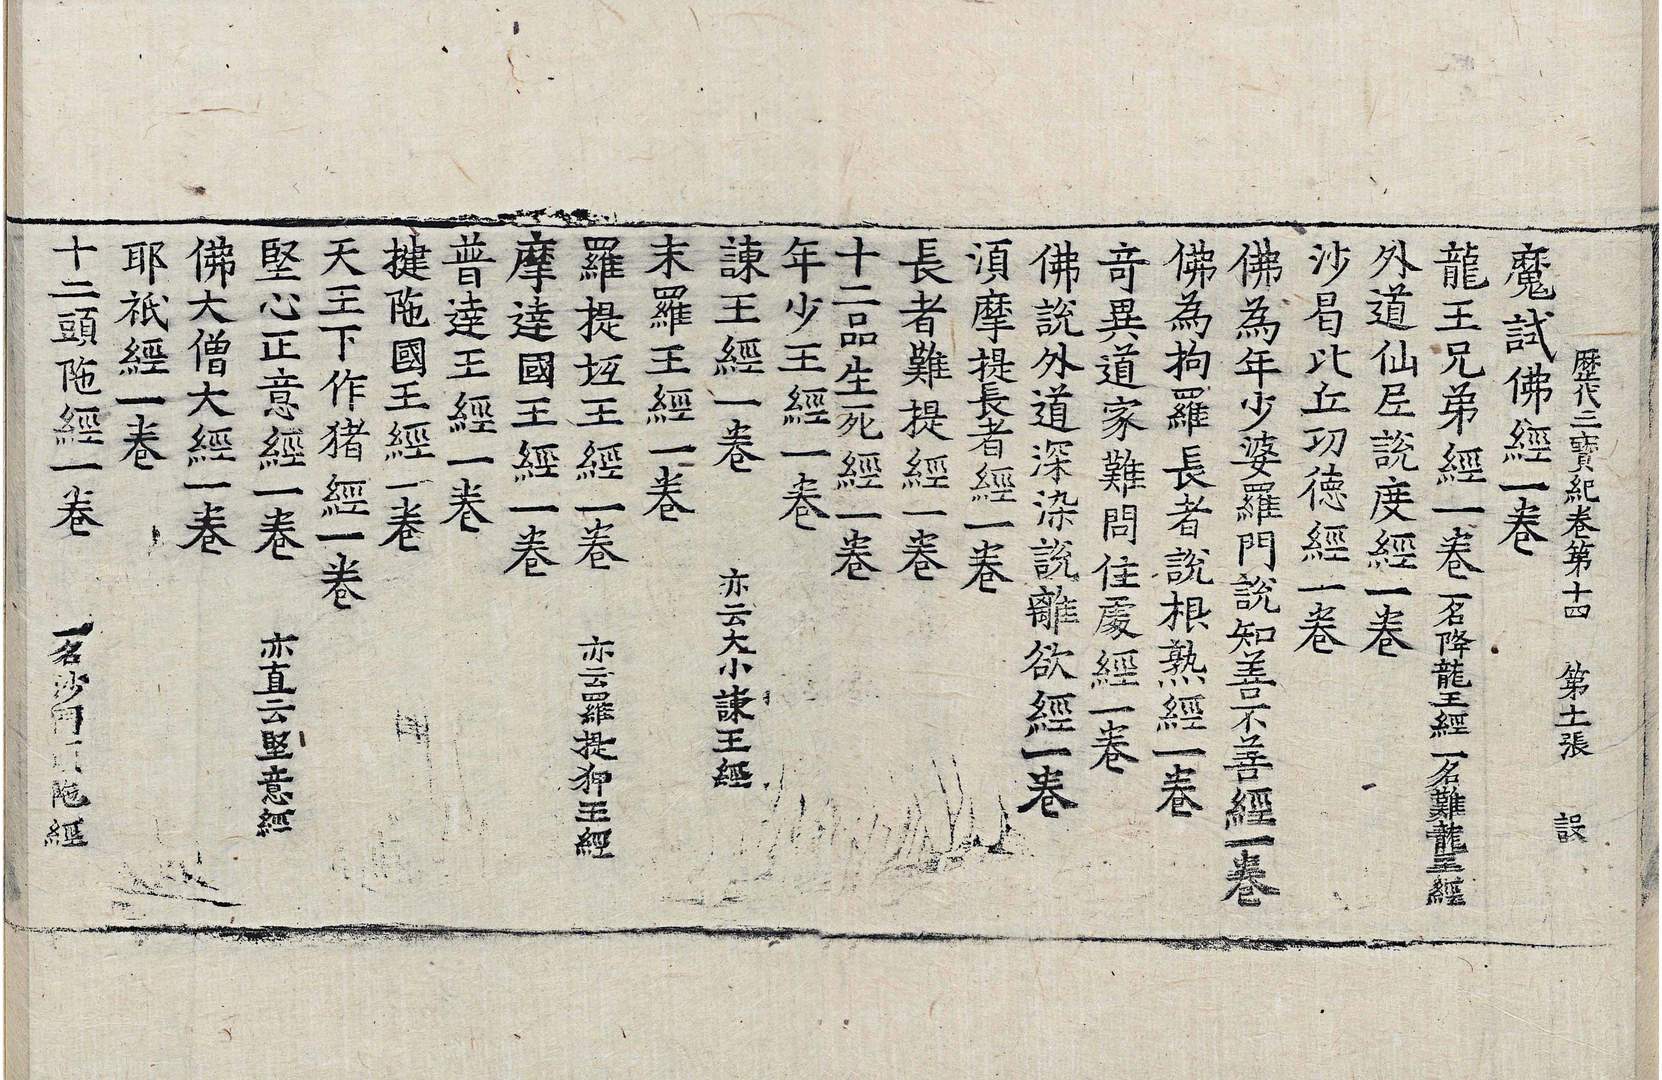 歷代三寶紀卷第十四 第十二張 設
魔試佛經一卷
龍王兄弟經一卷 一名降龍王經一名難龍王經
外道仙尼說度經一卷
沙曷比丘功德經一卷
佛為年少婆羅門說知善不善經一卷
佛為拘羅長者說根熟經一卷
奇異道家難問住處經一卷
佛說外道深染說離欲經一卷
湏摩提長者經一卷
長者難提經一卷
十二品生死經一卷
年少王經一卷
諫王經一卷 亦云大小諫王經
末羅王經一卷
羅提坘王經一卷 亦云羅提狎王經
摩達國王經一卷
普達王經一卷
揵陁國王經一卷
天王下作猪經一卷
堅心正意經一卷 亦直云堅意經
佛大僧大經一卷
耶祇經一卷
十二頭陁經一卷 一名沙門頭陁經